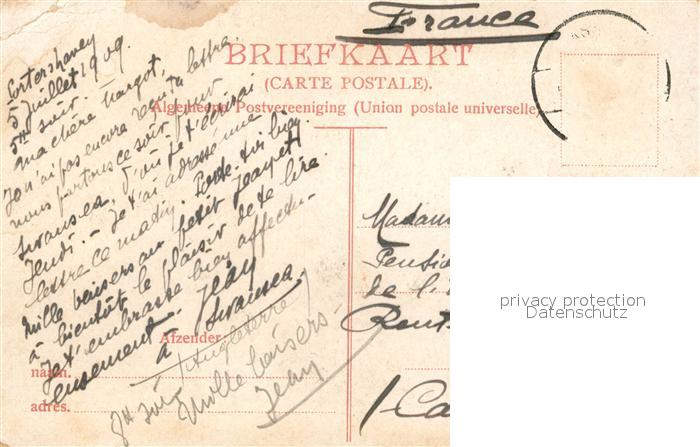 France
BRIEFKAART
(CARTE POSTALE).
Algemeene Postvereeniging (Union postale universelle)
5 Juillet 1909.
5H soir.
Ma chère Margot,
Je n'ai pas encore reçu ta lettre.
nous partons ce soir pour
Swansea, d'où je t'écrirai
Jeudi. - Je t'ai adressé une
lettre ce matin. Porte-toi bien.
Mille baisers au petit Jean et
à bientôt le plaisir de te lire.
Je t'embrasse bien affectu-
eusement. Jean
à Swansea
(Angleterre)
8H soir
Mille baisers-
Jean
Afzender:
naam:
adres:
Madam
Pensio
de l'
privacy protection
Datenschutz